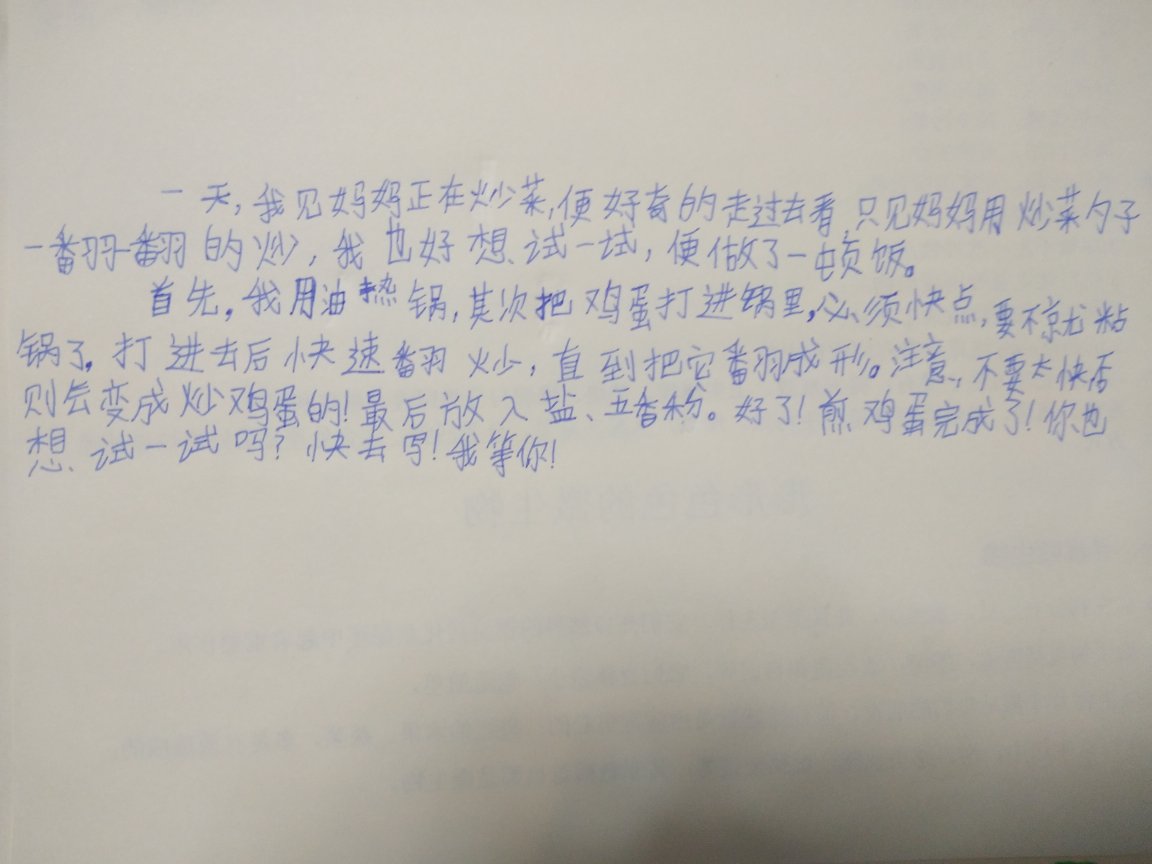 一天,我见妈妈正在炒菜,便好奇的走过去看,只见妈妈用炒菜勺子
一翻一翻的炒,我也好想试一试,便做了一顿饭。
首先,我用油热锅,其次把鸡蛋打进锅里,必须快点,要不就粘
锅了。打进去后快速翻炒,直到把它翻成形。注意,不要太快否
则会变成炒鸡蛋的!最后放入盐、五香粉。好了!煎鸡蛋完成了!你也
想试一试吗?快去写!我等你!